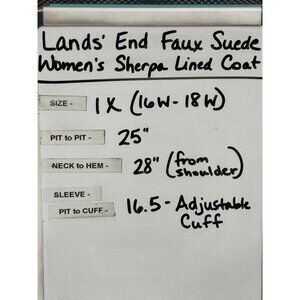 Lands' End Faux Suede
Women's Sherpa Lined Coat
SIZE - 1X (16W-18W)
PIT to PIT - 25"
NECK to HEM - 28" (from shoulder)
SLEEVE -
PIT to CUFF - 16.5 - Adjustable
Cuff